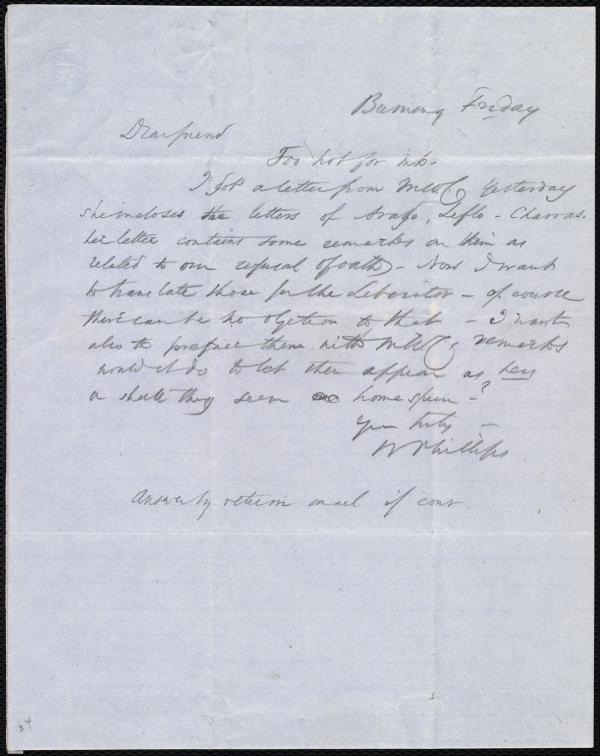 Friday
Dear friend
Too hot for ink.
I got a letter from yesterday
she incloses the letters of Arago, Leflo - Charras.
her letter contains some remarks on them as
related to our refusal of oaths - Now I want
to translate those for the Liberator - of course
there can be no objection to that - I want
also to preface them with remarks
would it do to let them appear as hers
or shall they seem homespun - ?
Yrs truly -
W Phillips
Answer by return mail if conv
34